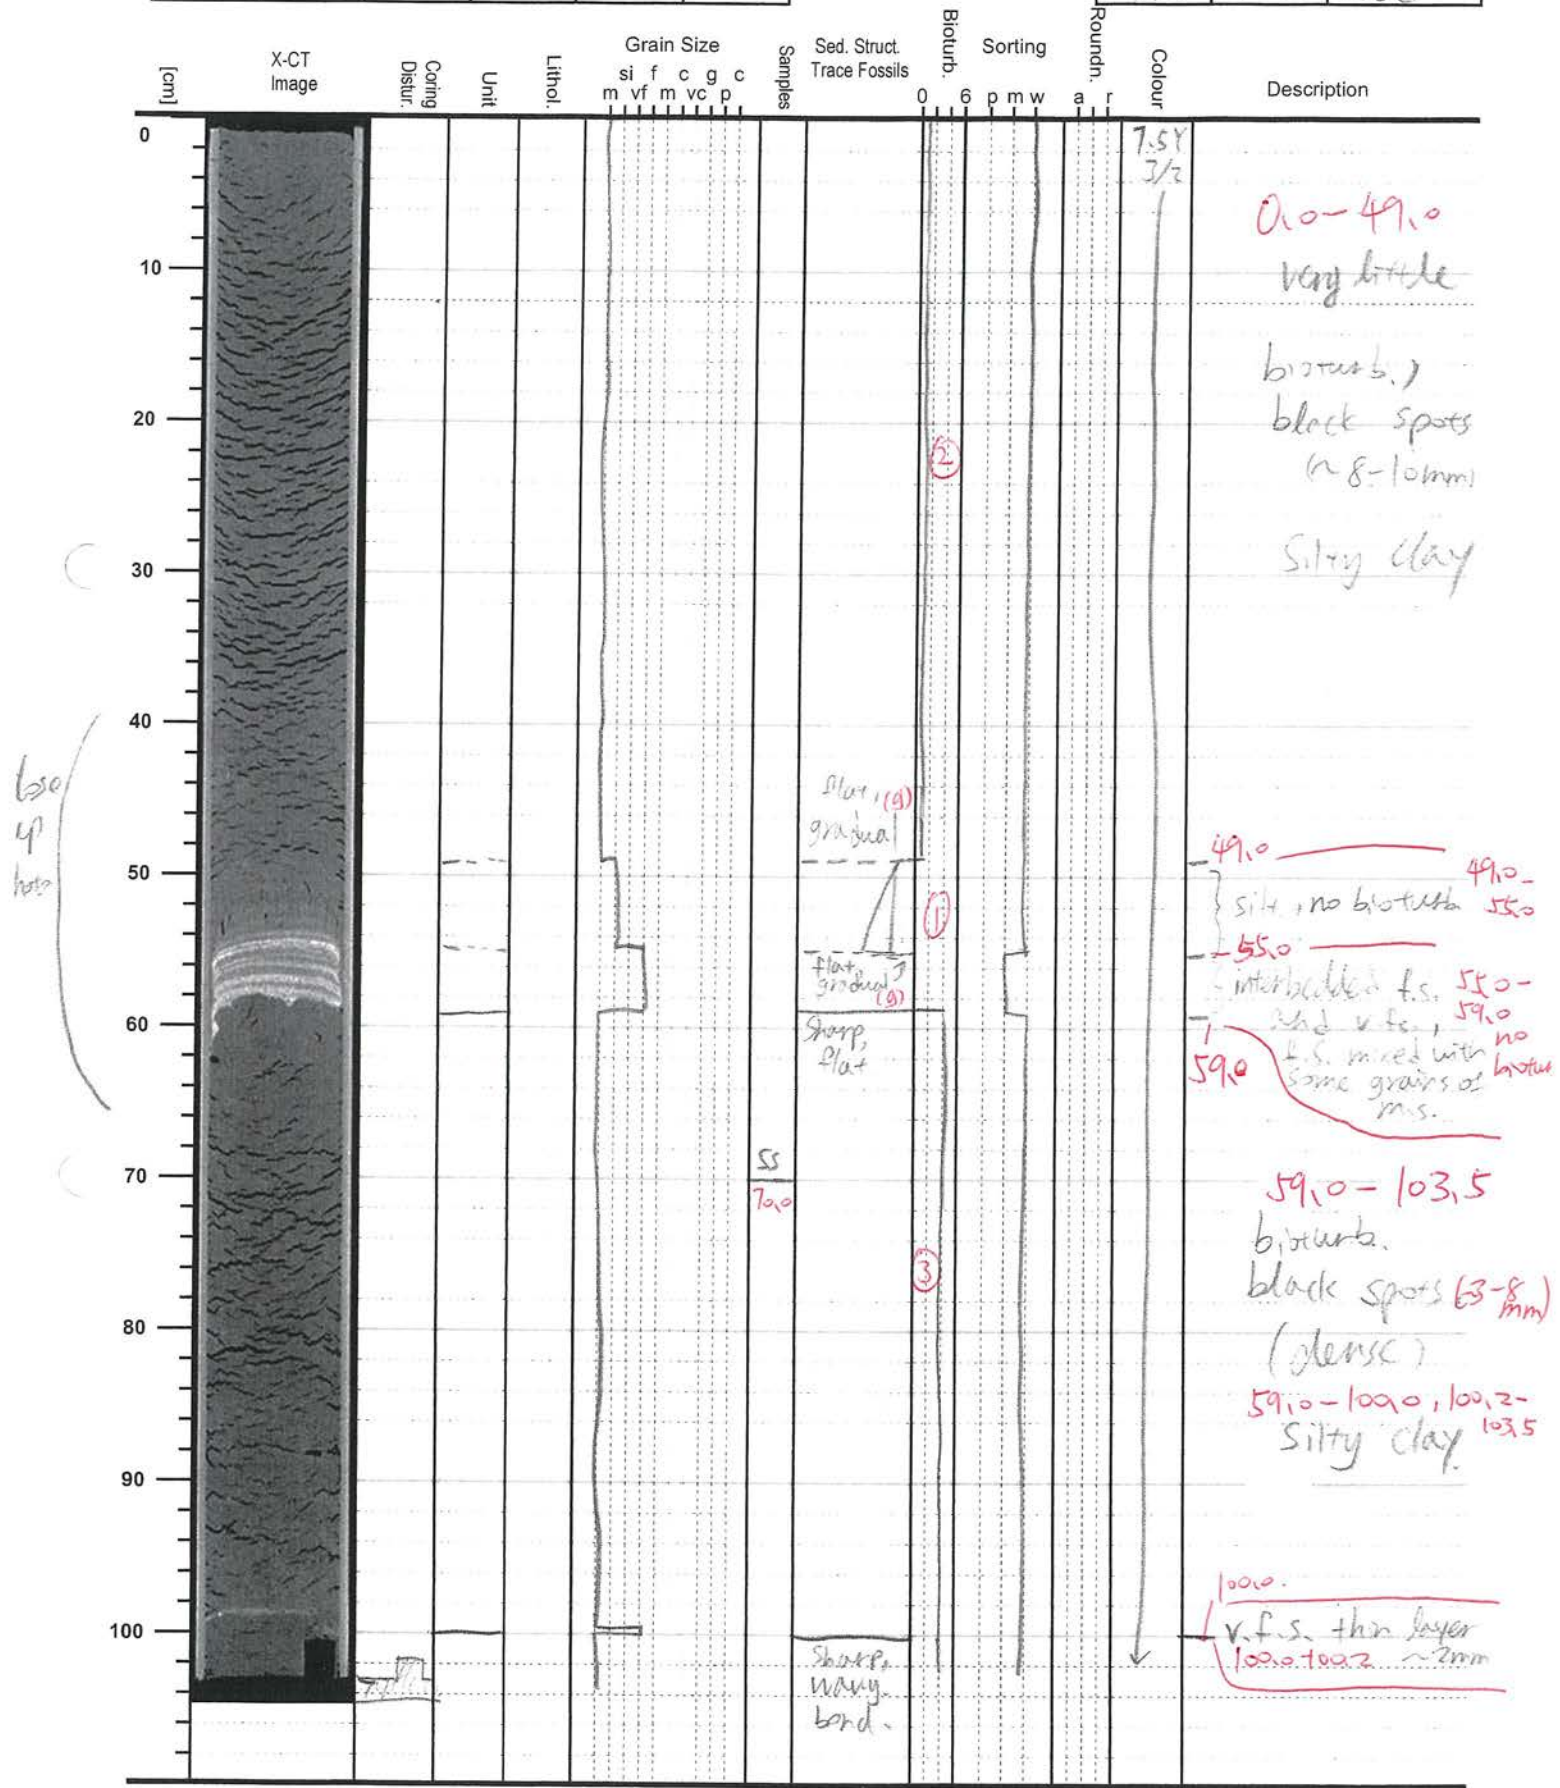 [cm]
X-CT
Image
Coring
Distur.
Unit
Lithol.
Grain Size
si f c g c
m vf m vc p
Samples
Sed. Struct.
Trace Fossils
Bioturb.
0 6
Sorting
p m w
Roundn.
a r
Colour
Description
0
10
20
30
40
50
60
70
80
90
100
7.5Y
3/2
0.0-49.0
very little
bioturb.,
black spots
(~8-10mm)
Silty clay
②
up
flat, (g)
gradual
①
flat,
gradual
(g)
Sharp,
flat
49.0
49.0-
55.0
silt, no bioturb
55.0
interbedded f.s. 55.0-
59.0
and v.f.s.,
no
f.s. mixed with
59.0
some grains of
m.s.
SS
70.0
③
59.0-103.5
bioturb.
black spots (3-8
mm)
(dense)
59.0-100.0, 100.2-
103.5
Silty clay.
100.0.
v.f.s. thin layer
100.0-100.2 ~2mm
Sharp,
wavy
bond.